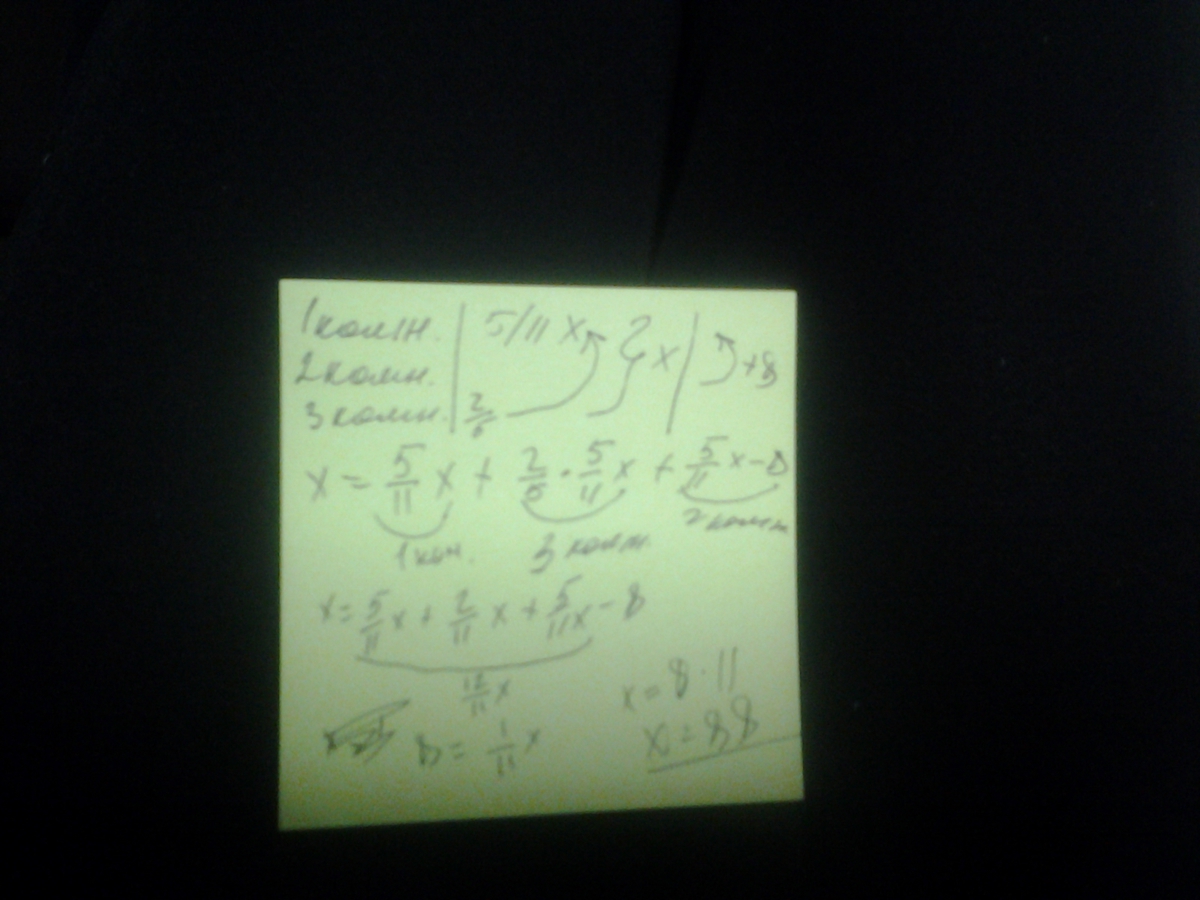 1 комн. | 5/11 x } x | +8
2 комн.
3 комн. 2/5
x = 5/11 x + 2/5 · 5/11 x + 5/11 x - 8
1 ком. 3 комн. 2 комн
x = 5/11 x + 2/11 x + 5/11 x - 8
12/11 x
x = 8 · 11
8 = 1/11 x
x = 88